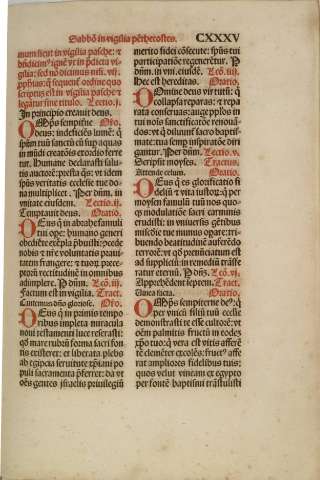 Sabbō in vigilia pēthecostes. CXXXV
mum sicut in vigilia pasche: ⁊
bn̄dicim⁹ igiē vt in p̄dicta vi
gilia: sed nō dicimus nisi. vij.
pphias: q̄ sequent̄ eo ordine quo
scriptus est in vigilia pasche ⁊
legāt̄ sine titulo. Lectio.j.
In principio creauit deus.
OMp̄s sempitne Or̄o.
deus: indeficiēs lumē: q
spm̄ tuū sanctū cū sup aquas
in mūdi creatiōis exordio ferre
tur. Humane declarasti salu-
tis auctorē: p̄sta q̄s: vt idem
spūs veritatis ecclesie tue do-
na multiplicet. Per dn̄m. in
vnitate eiusdem. Lectio.ij.
Temptauit deus. Oratio.
DEus q in abrahe famuli
tui ope: humano generi
obediētie exēpla p̄buisti: p̄cede
nobis ⁊ n̄re voluntatis praui-
tatem frangere: ⁊ tuorū p̄ce-
ptorū rectitudinē in omnibus
adimplere. P dn̄m. Lcō.iij.
Factum est in vigilia. Tract.
Cantemus dn̄o gloriose. Or̄o.
DEus q in primis tempo
ribus impleta miracula
noui testamenti luce referasti:
qd mare rubrū forma sacri fon
tis existeret: et liberata plebs
ab egipcia seruitute xp̄iani po
puli sacramenta p̄ferret: da vt
oēs gentes israelis priuilegiū
merito fidei cōsecute: spūs tui
participatiōe regenerētur. P
dn̄m. in vni. eiusdē. Lcō.iiij.
Hec est hereditas. Oratio.
DOmine deus virtutū: q
collapsa reparas: ⁊ repa
rata conseruas: auge pplos in
tui nōis sanctificatōe renouā-
dos: vt q diluunt̄ sacro baptis-
mate: tua semp inspiratōe diri
gantur. P dn̄m. Lectio.v.
Scripsit moyses. Tractus.
Attende celum. Oratio.
DEus q es glorificatio fi
deliū ⁊ vita iustorū: q p
moysen famulū tuū nos quo-
qz modulatiōe sacri carminis
erudisti: in vniuersis gētibus
miscōie tue munus opare: tri-
buendo beatitudinē auferēdo
terrorē: vt qd pronūciatum est
ad suppliciū: in remediū trāsfe
ratur eternū. P dn̄m. Lcō.vj.
Apprehēdent septem. Tract.
Vinea facta. Oratio.
OMp̄s sempiterne de⁹: q
per vnicū filiū tuū eccle
demonstrasti te esse cultorē: vt
oēm palmitis fructū in eodez
xp̄o tuo: q vera est vitis afferē
tē clemēter excolēs: fruct⁹ affe
rat ampliores fidelibus tuis:
quos velut vineam ex egypto
per fontē baptismi trāstulisti